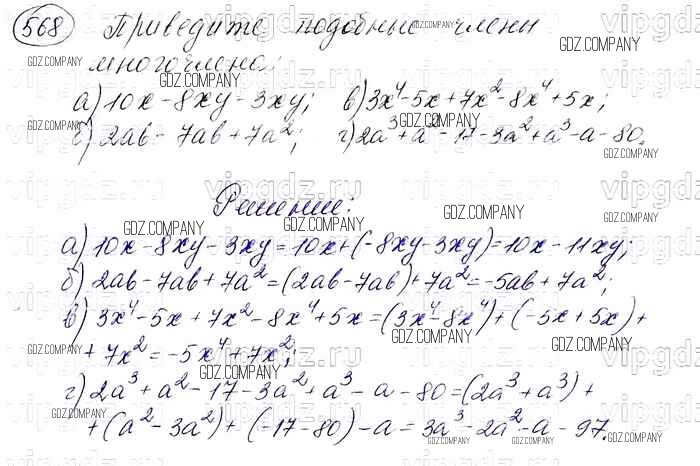 568 Приведите подобные члены
многочлена:
а) 10x - 8xy - 3xy; в) 3x⁴ - 5x + 7x² - 8x⁴ + 5x;
б) 2ab - 7ab + 7a²; г) 2a³ + a² - 17 - 3a² + a³ - a - 80.
Решение:
а) 10x - 8xy - 3xy = 10x + (-8xy - 3xy) = 10x - 11xy;
б) 2ab - 7ab + 7a² = (2ab - 7ab) + 7a² = -5ab + 7a²;
в) 3x⁴ - 5x + 7x² - 8x⁴ + 5x = (3x⁴ - 8x⁴) + (-5x + 5x) +
+ 7x² = -5x⁴ + 7x²;
г) 2a³ + a² - 17 - 3a² + a³ - a - 80 = (2a³ + a³) +
+ (a² - 3a²) + (-17 - 80) - a = 3a³ - 2a² - a - 97.
GDZ.COMPANY
vipgdz.ru